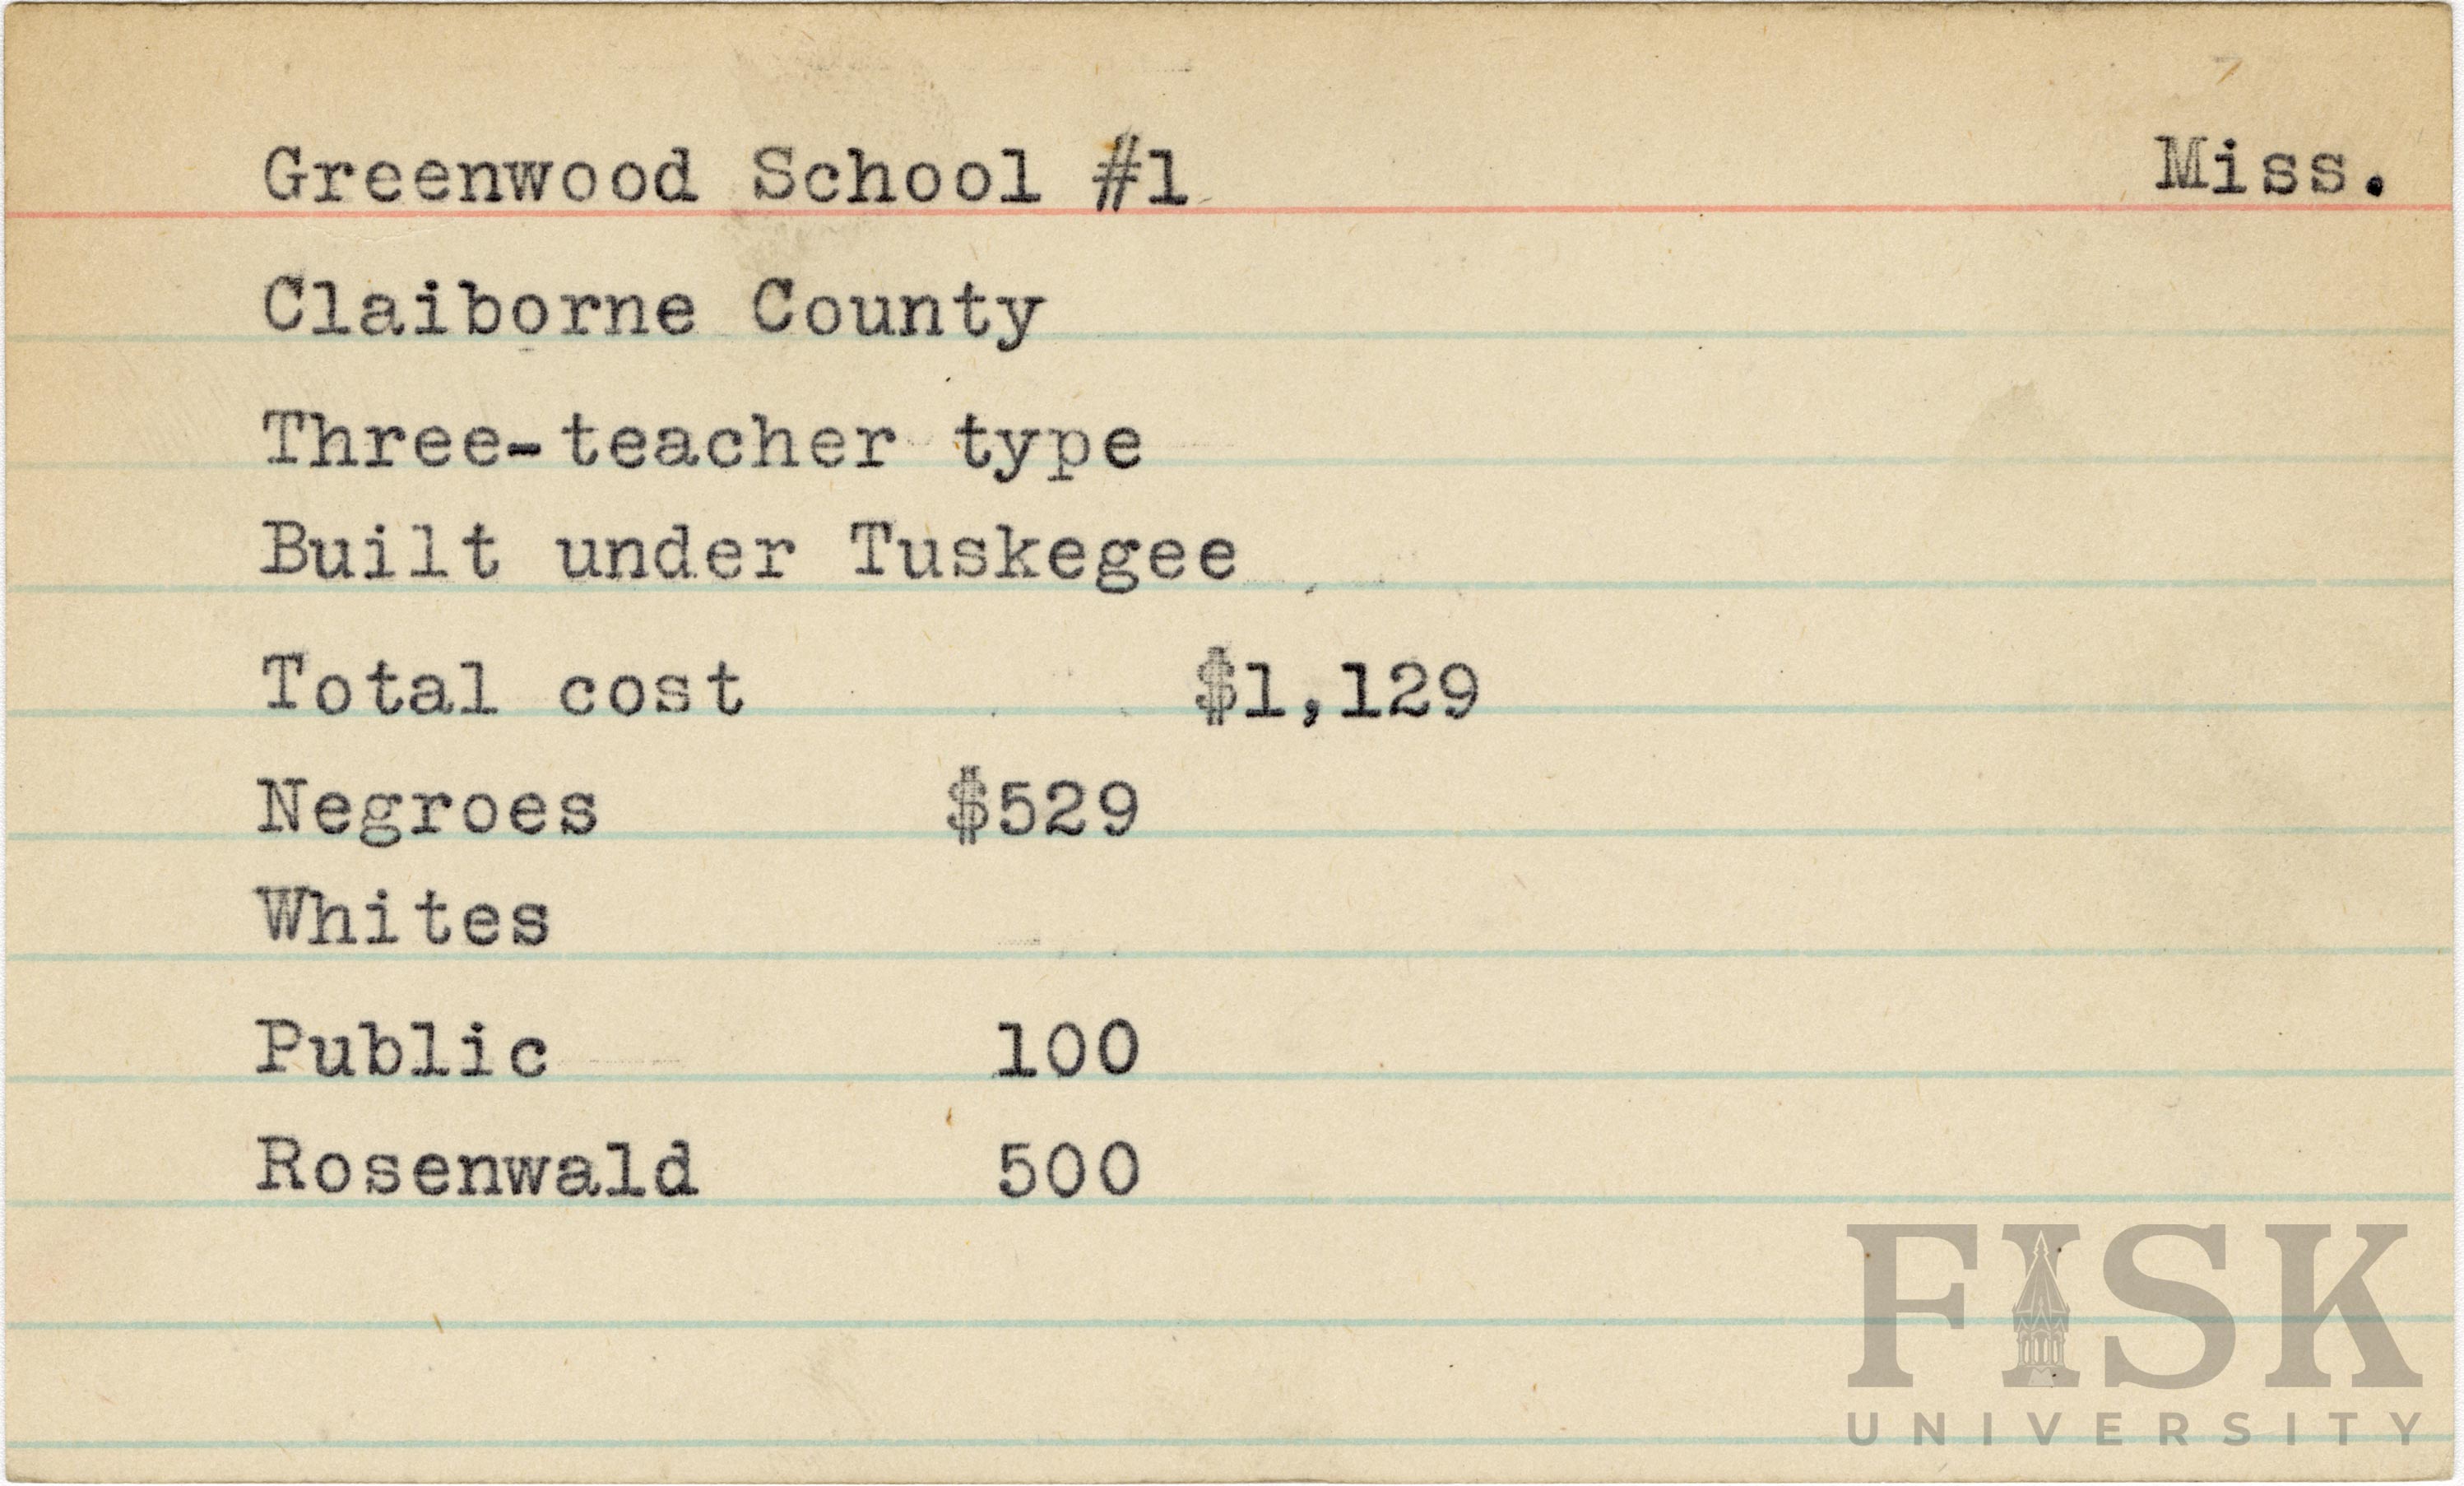 Greenwood School #1 Miss.
Claiborne County
Three-teacher type
Built under Tuskegee
Total cost $1,129
Negroes $529
Whites
Public 100
Rosenwald 500
FISK
UNIVERSITY